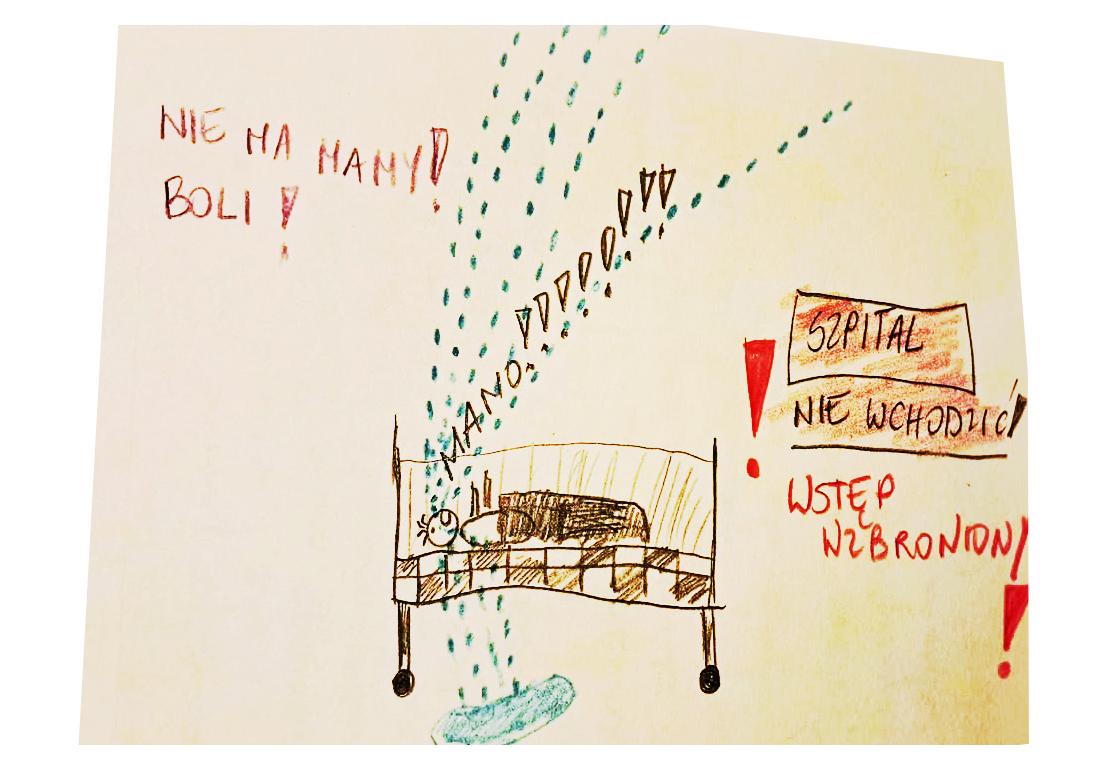 NIE MA MAMY!
BOLI !
MAMO!!!!!!!!
SZPITAL
NIE WCHODZIĆ!
! WSTĘP
WZBRONIONY
!